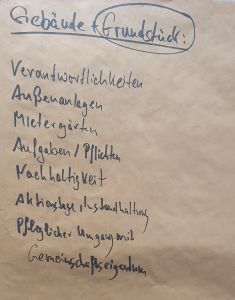 Gebäude + Grundstück:
Verantwortlichkeiten
Außenanlagen
Mietergärten
Aufgaben / Pflichten
Nachhaltigkeit
Aktionstage, Instandhaltung
Pfleglicher Umgang mit
Gemeinschaftseigentum